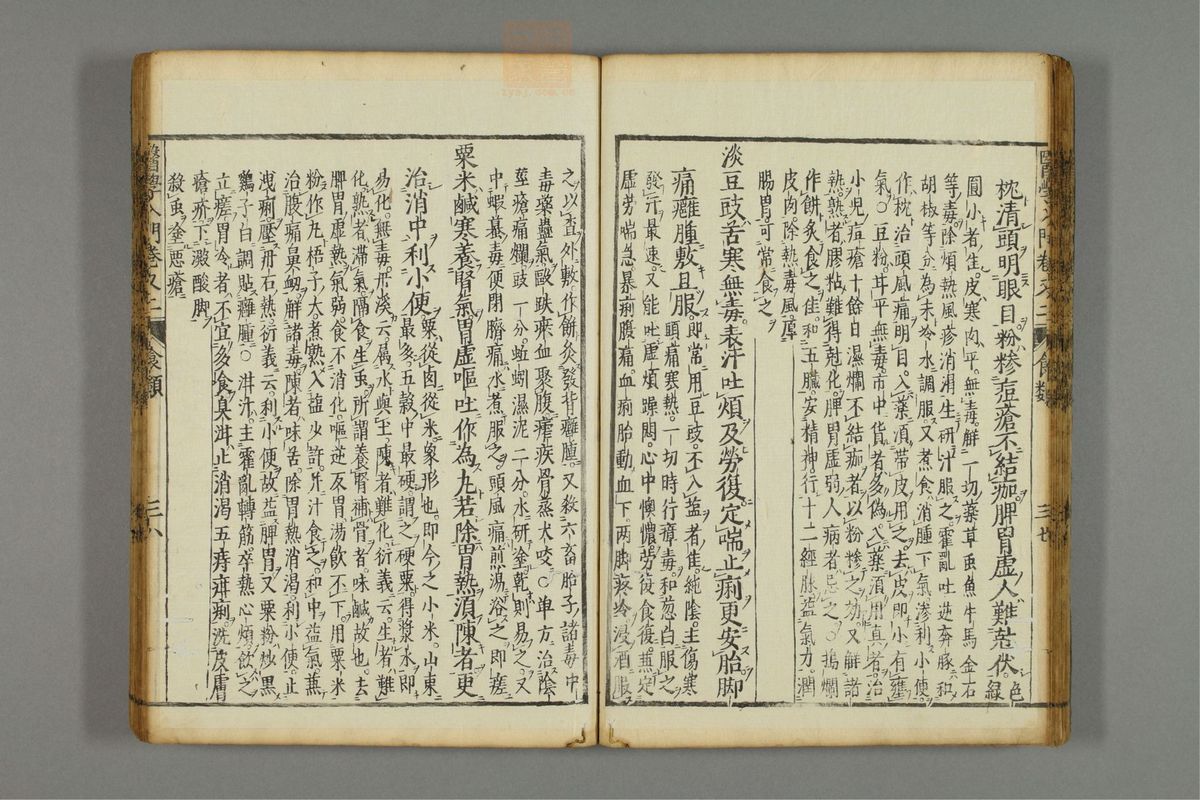 枕清頭明眼目粉糝痘瘡不結痂脾胃虛人難尅伏色綠
圓小者生皮寒肉平無毒解一切藥草虫魚牛馬金石
等毒除煩熱風疹消渴生研汁服之霍亂吐逆奔豚和
胡椒等分為末冷水調服又煮食消腫下氣滲利小便
作枕治頭風痛明目入藥須帶皮用之去皮即小有壅
氣○豆粉甘平無毒市中貨者多偽入藥須用真者治
小兒痘瘡十餘日濕爛不結痂者以粉糝之妙又解諸
熱熟者膠粘難得尅化脾胃虛弱人病者忌之○搗爛
作餅炙食之佳和五臟安精神行十二經脉益氣力潤
皮肉除熱毒風厚
腸胃可常食之
淡豆豉苦寒無毒表汗吐煩及勞復定喘止痢更安胎脚
痛癰腫敷且服即常用豆豉不入鹽者佳純陰主傷寒
頭痛寒熱一切時行瘴毒和葱白服之
發汗最速又能吐虛煩躁悶心中懊憹勞復食復兼定
虛勞喘急暴痢腹痛血痢胎動血下兩脚疼冷浸酒服
之以查外敷作餅灸發背癰腫又殺六畜胎子諸毒中
毒藥蠱氣毆跌瘀血聚腹瘧疾骨蒸犬咬○單方治陰
莖瘡痛爛豉一分蚯蚓濕泥二分水研塗乾則易之又
中蝦蟇毒便閉臍痛水煮服之頭風痛煎湯浴之即瘥
粟米鹹寒養腎氣胃虛嘔吐作為丸若除胃熱須陳者更
治消中利小便粟從鹵從米象形也即今之小米山東
最多五穀中最硬謂之硬粟得漿水即
易化無毒丹溪云屬水與土陳者難化衍義云生者難
化熟者滯氣隔食生虫所謂養腎補骨者味鹹故也去
脾胃虛熱氣弱食不消化嘔逆反胃湯飲不下用粟米
粉作丸梧子大煮熟入鹽少許并汁食之和中益氣兼
治腹痛鼻衂解諸毒陳者味苦除胃熱消渴利小便止
洩痢壓丹石熱衍義云利小便故益脾胃又粟粉炒黑
鷄子白調貼癰腫○泔汁主霍亂轉筋卒熱心煩飲之
立瘥胃冷者不宜多食臭泔止消渴五痔疳痢洗皮膚
瘡疥下澱酸脚
殺虫塗惡瘡
醫學入門卷之二
食類
三七
醫學入門卷之二
食類
三八
zysj.com.cn